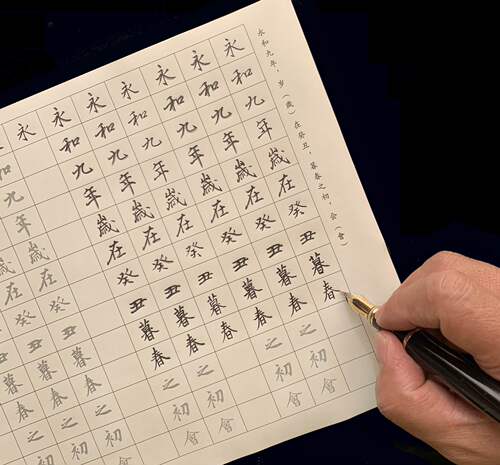 永和九年，岁（歲）在癸丑，暮春之初，会（會）
永和九年歲在癸丑暮春
永和九年歲在癸丑暮春之初會
永和九年歲在癸丑暮春之初會
永和九年歲在癸丑暮春
永和九年歲在癸丑暮春之初會
永和九年歲在癸丑暮春之初會
永
九年歲在癸丑暮春之初會
歲在癸丑暮春之初
暮春之初